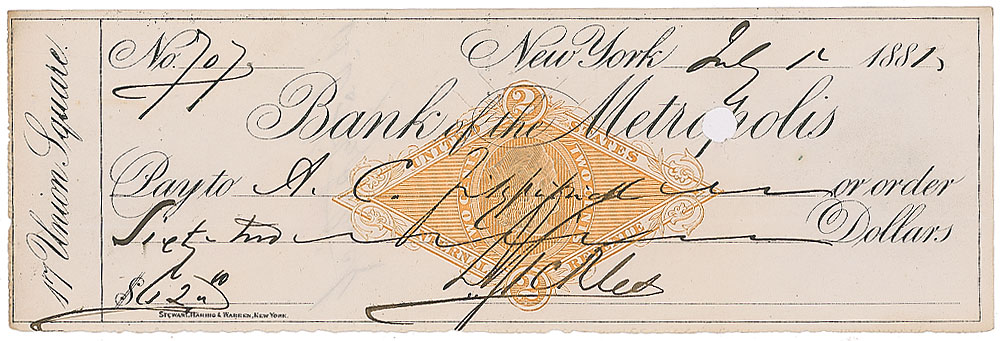 17 Union Square.
No. 707. New York July 1 1881,
Bank of the Metropolis
Pay to A. C. or order
Sixty two Dollars
$62.00
STEWART, WARREN, NEW YORK.
2
UNITED STATES
TWO
INTERNAL REVENUE
2